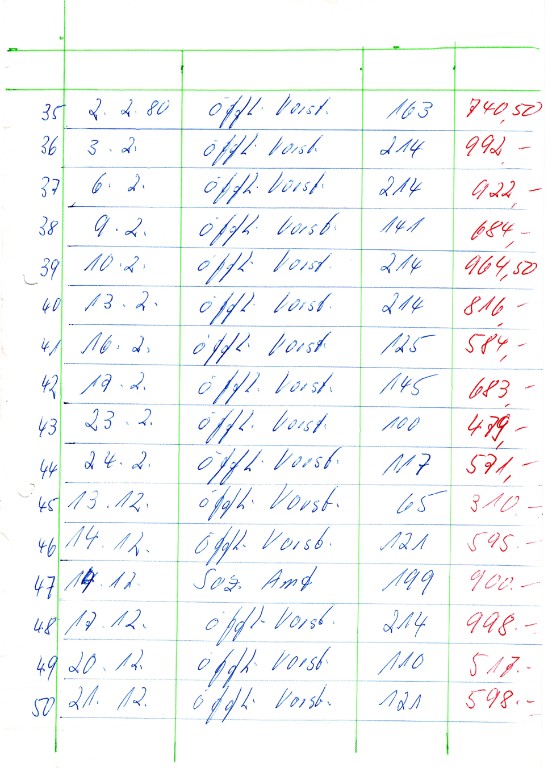 35 2. 2. 80 öffl. Vorst. 163 740,50
36 3. 2. öffl. Vorst. 214 992,-
37 6. 2. öffl. Vorst. 214 922,-
38 9. 2. öffl. Vorst. 141 684,-
39 10. 2. öffl. Vorst. 214 964,50
40 13. 2. öffl. Vorst. 214 816,-
41 16. 2. öffl. Vorst. 125 584,-
42 17. 2. öffl. Vorst. 145 683,-
43 23. 2. öffl. Vorst. 100 479,-
44 24. 2. öffl. Vorst. 117 571,-
45 13. 12. öffl. Vorst. 65 310.-
46 14. 12. öffl. Vorst. 121 595.-
47 12. Soz. Amt 199 900.-
48 17. 12. öffl. Vorst. 214 998.-
49 20. 12. öffl. Vorst. 110 517.-
50 21. 12. öffl. Vorst. 121 598.-